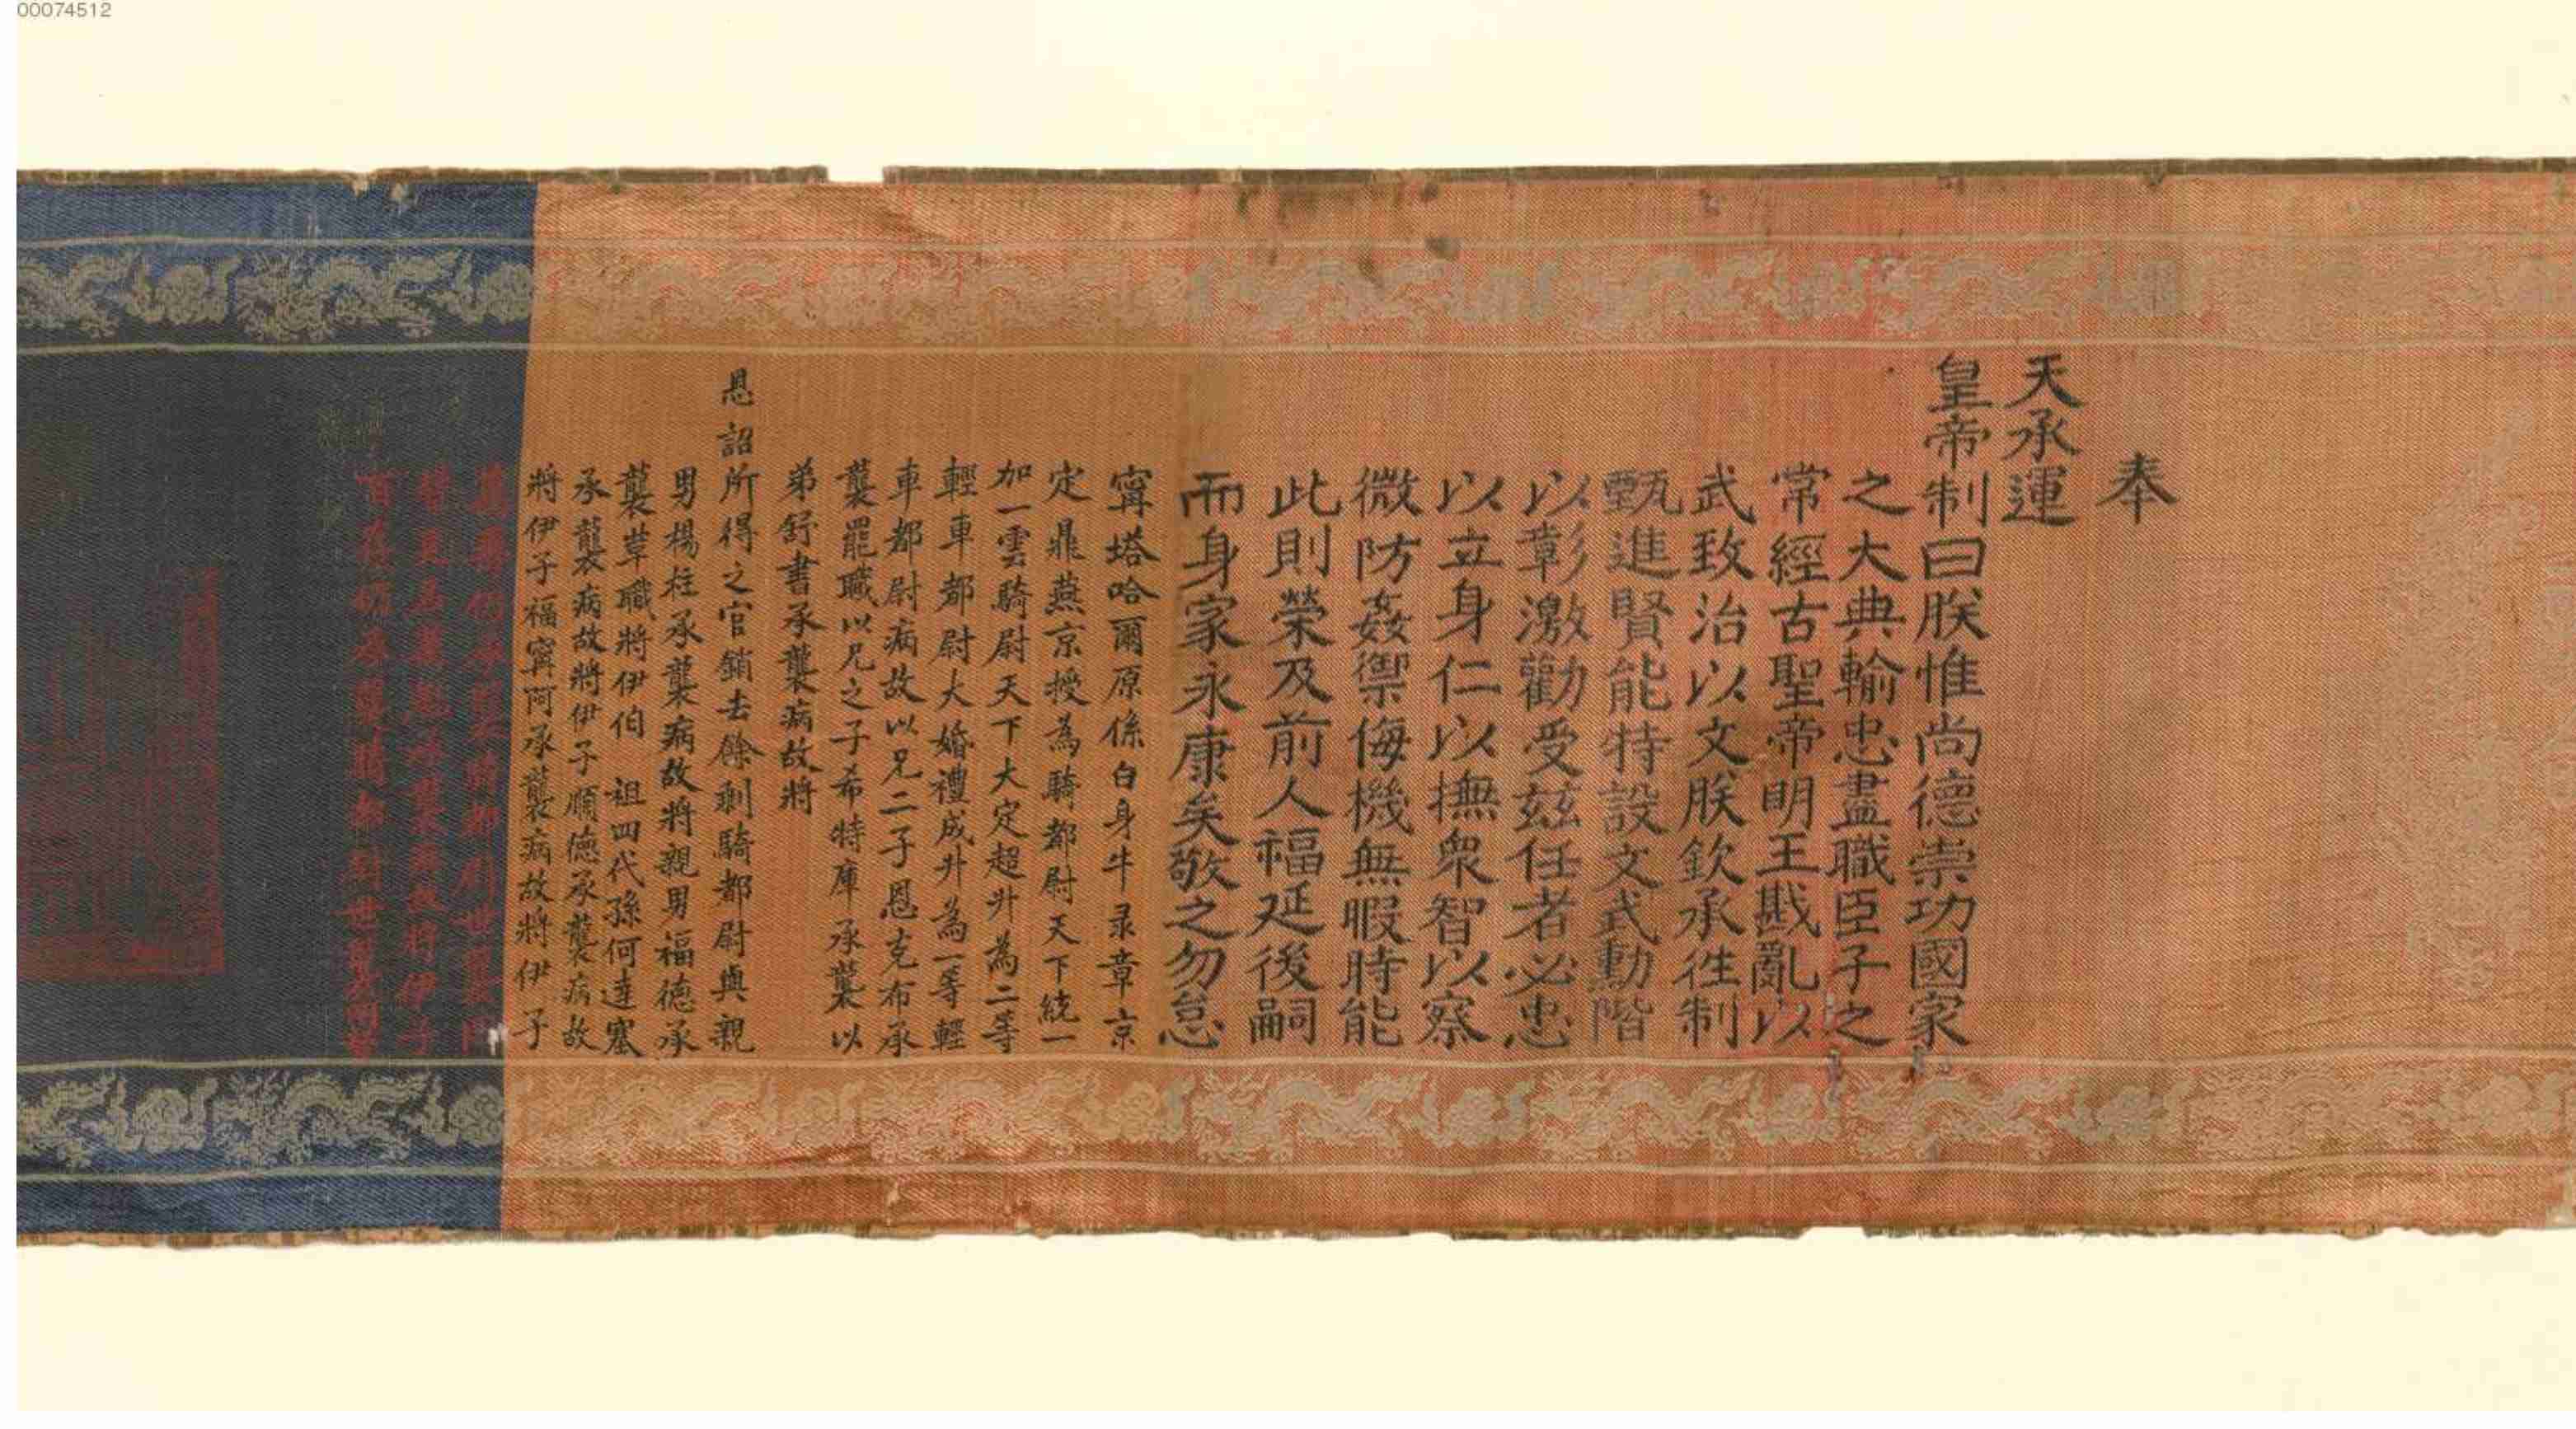 00074512
奉
天承運
皇帝制曰朕惟尚德崇功國家
之大典輸忠盡職臣子之
常經古聖帝明王戡亂以
武致治以文朕欽承徃制
甄進賢能特設文武勳階
以彰激勸受茲任者必忠
以立身仁以撫衆智以察
微防姦禦侮機無暇時能
此則榮及前人福延後嗣
而身家永康矣敬之勿怠
寗塔哈爾原係白身牛录章京
定鼎燕京授為騎都尉天下統一
加一雲騎尉天下大定超升為二等
輕車都尉大婚禮成升為一等輕
車都尉病故以兄二子恩克布承
襲罷職以兄之子希特庫承襲以
弟舒書承襲病故將
恩詔所得之官銷去餘剩騎都尉與親
男楊柱承襲病故將親男福德承
襲革職將伊伯 祖四代孫何達塞
承襲病故將伊子順德承襲病故
將伊子福寗阿承襲病故將伊子
承襲騎都尉世襲
承襲病故將伊子
承襲騎都尉世襲